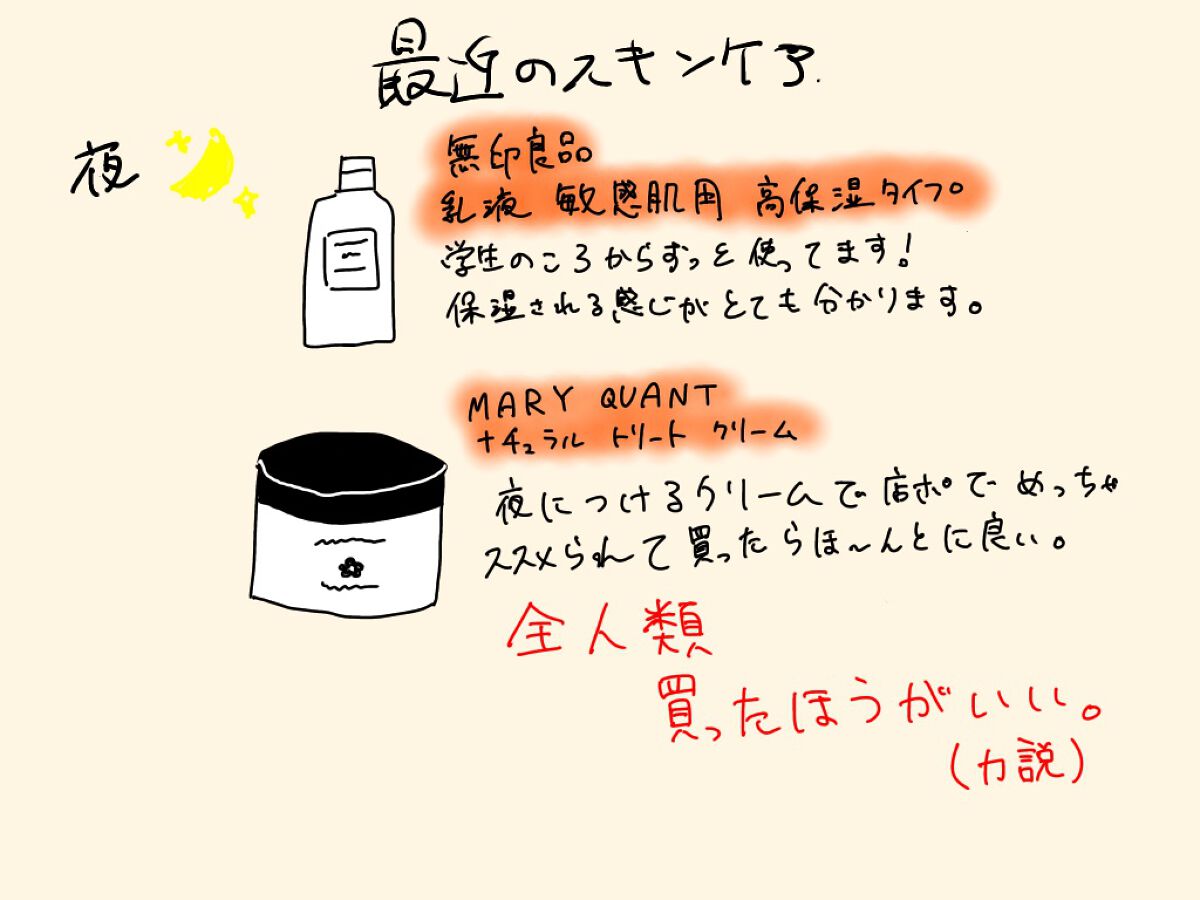 最近のスキンケア
夜
無印良品
乳液 敏感肌用 高保湿タイプ。
学生のころからずっと使ってます!
保湿される感じがとても分かります。
MARY QUANT
ナチュラル トリート クリーム
夜につけるクリームで店ポでめっちゃ
ススメられて買ったらほ〜んとに良い。
全人類
買ったほうがいい。
(力説)